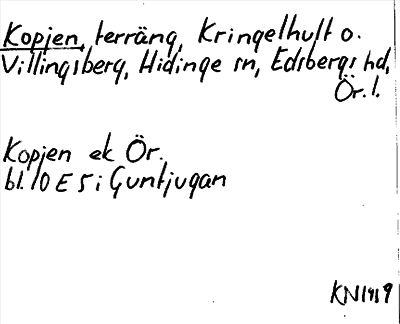 Kopjen, terräng, Kringelhult o.
Villingsberg, Hidinge sn, Edsbergs hd,
Ör. l.
Kopjen ek Ör.
bl. 10 E 5 i Guntjugan
KN1919